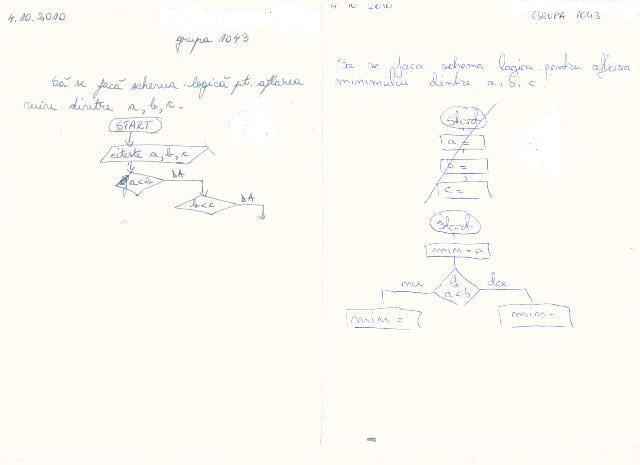 4.10.2010
grupa 1043
Să se facă schema logică pt. aflarea
min dintre a, b, c.
START
citeste a, b, c
a<b
DA
b<c
DA
4 10 2010
GRUPA 1043
Sa se faca schema logica pentru aflarea
minimului dintre a, b, c.
Start
a =
b =
c =
Start
min = a
nu
a<b
da
min =
min =